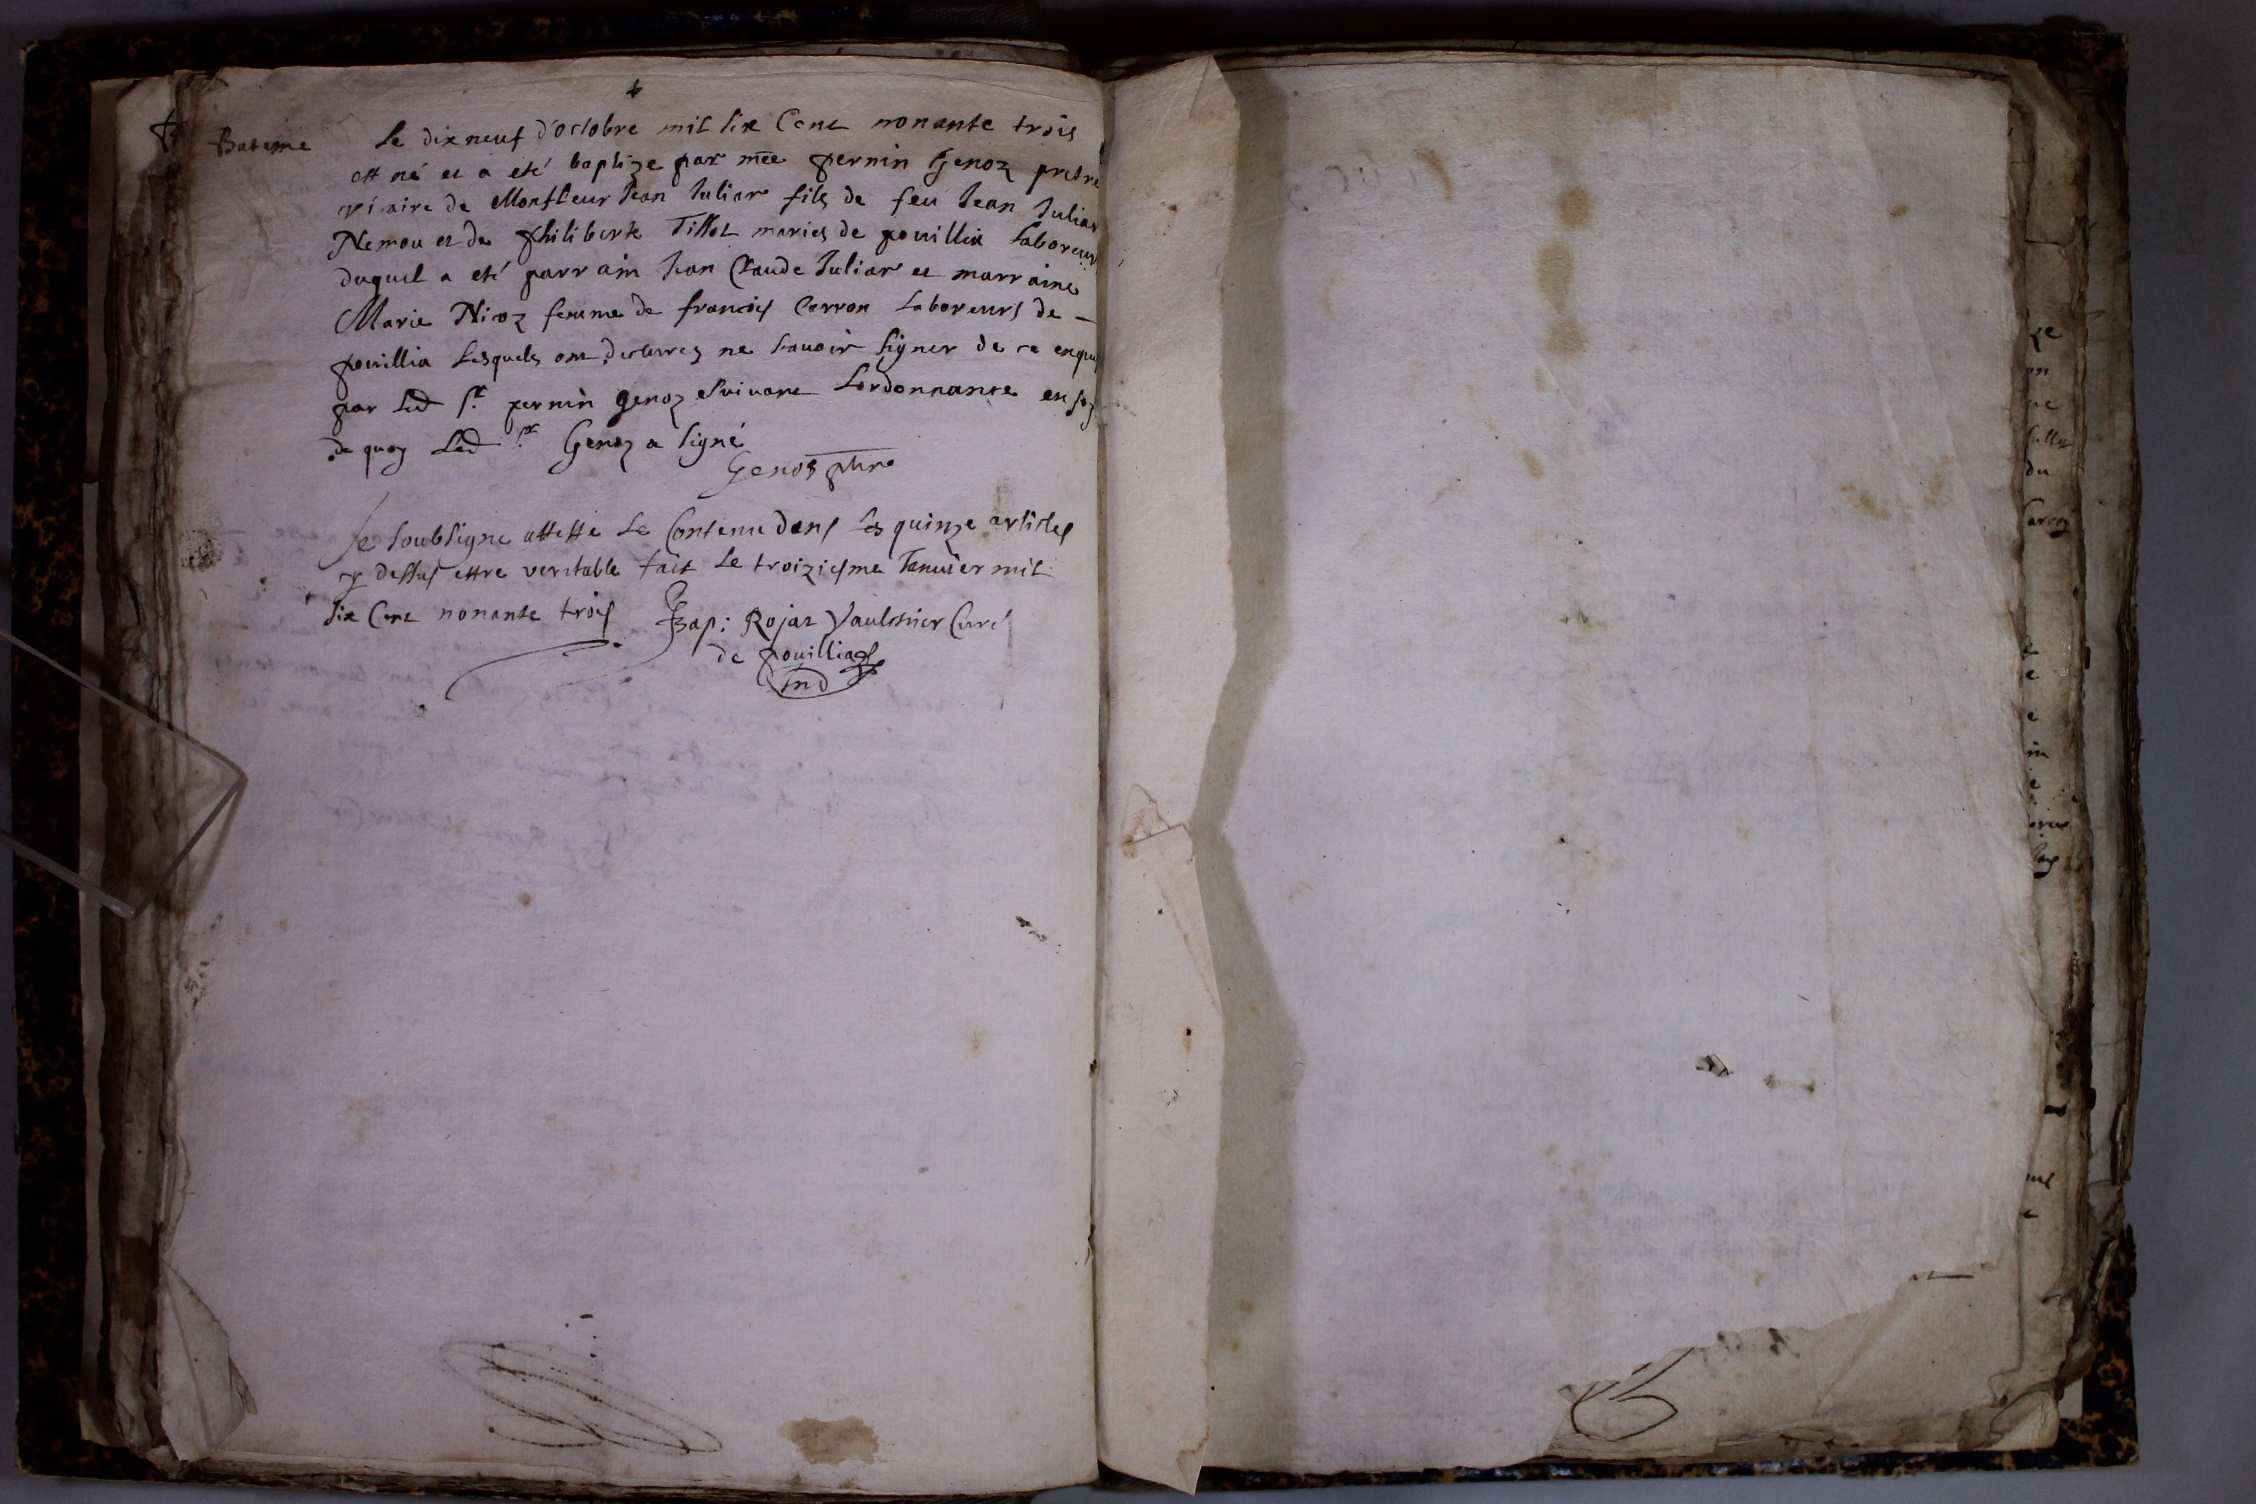 Bateme
Le dixneuf d'octobre mil six Cent nonante trois
est né et a eté baptize par mre pernin Genoz pretre
vicaire de Monsieur Jean Juliar fils de feu Jean Juliar
Nemou et de philiberte Tissot mariés de pouillia Laboreur
duquel a eté parrain Jean Claude Juliar et marraine
Marie Nicoz femme de francois Carron Laboreurs de –
pouillia Lesquels ont declarez ne scavoir signer de ce enquis
par Led sr pernin genoz suivant Lordonnance en foy
de quoy Led sr Genoz a signé
Genoz ptre
Je soubsigne atteste Le Contenu dans Les quinze articles
cy dessus estre veritable fait Le troiziesme Janvier mil
six Cent nonante trois
Bap: Rojat Curé
de pouillia